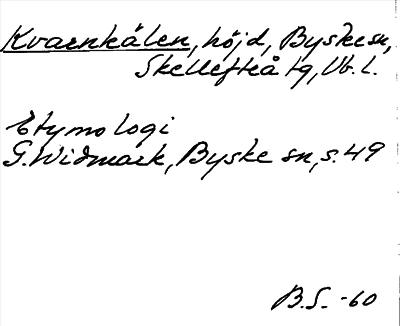 Kvarnkälen, höjd, Byske sn,
Skellefteå tg, Vb. l.
Etymologi
G. Widmark, Byske sn, s. 49
B.S. -60